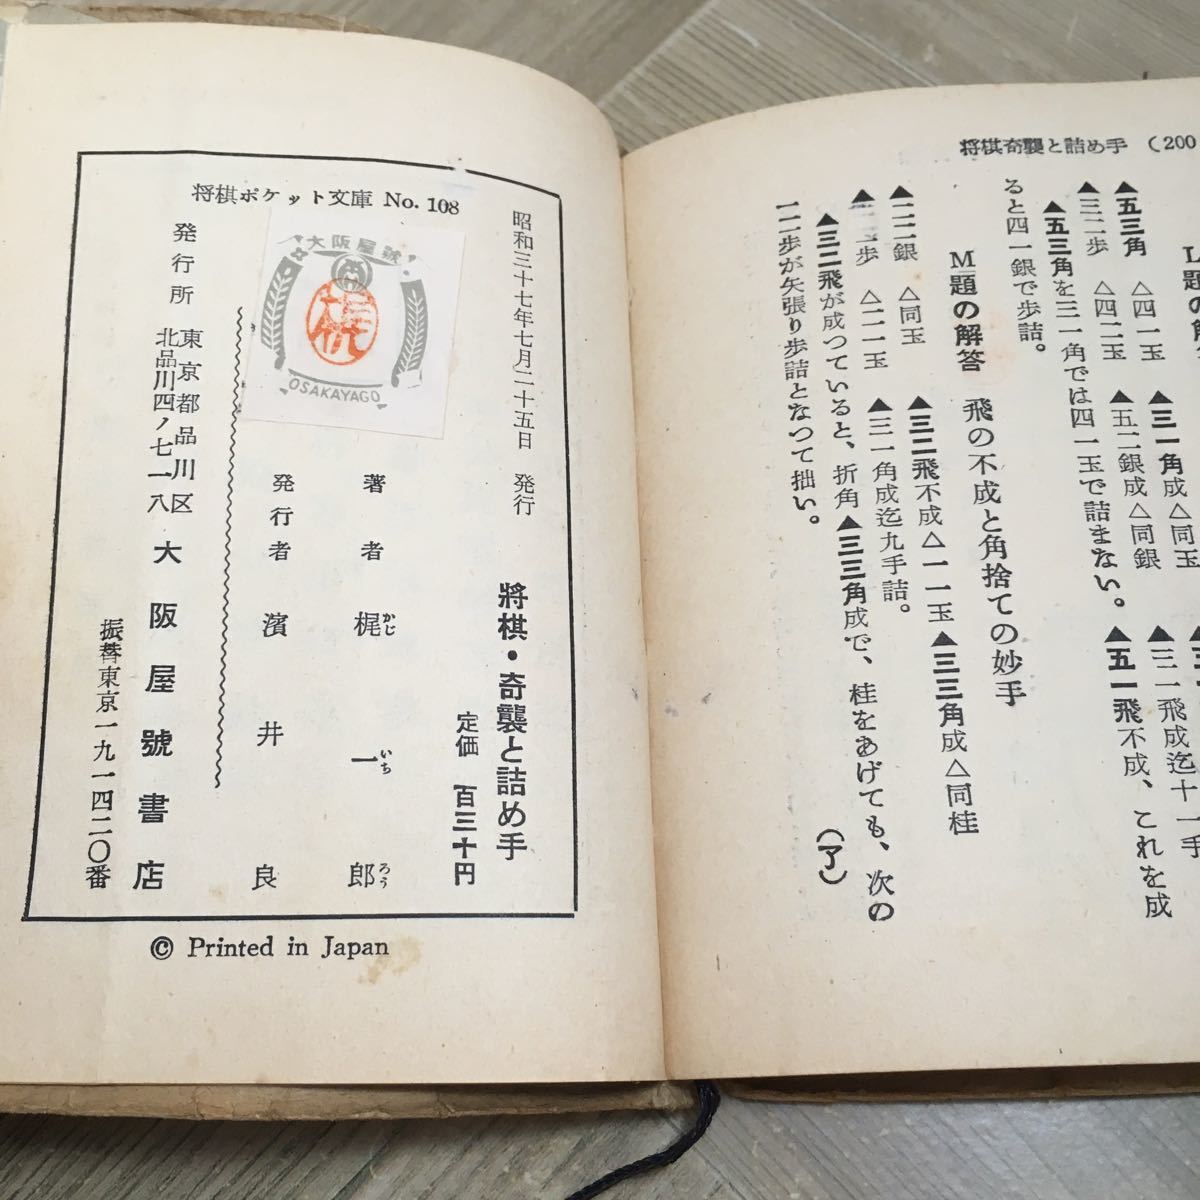 将棋奇襲と詰め手 (200
▲五三角 △四一玉 ▲三一角成△同玉
▲三二歩 △四二玉 ▲五二銀成△同銀 ▲三一飛成迄十一手
▲五三角を三一角では四一玉で詰まない。 ▲五一飛不成、これを成
ると四一銀で歩詰。
M題の解答 飛の不成と角捨ての妙手
▲二二銀 △同玉 ▲三二飛不成△一一玉▲三三角成△同桂
歩 △二一玉 ▲三一角成迄九手詰。
▲三二飛が成つていると、折角▲三三角成で、桂をあげても、次の
一二歩が矢張り歩詰となつて拙い。
(了)
将棋ポケット文庫 No. 108
昭和三十七年七月二十五日 発行
大阪屋號
梶
OSAKAYAGO
将棋・奇襲と詰め手
定価 百三十円
著者 梶一郎
かじ いち ろう
発行者 濱井良
発行所 東京都品川区
北品川四ノ七一八
大阪屋號書店
振替東京一九一四二〇番
© Printed in Japan